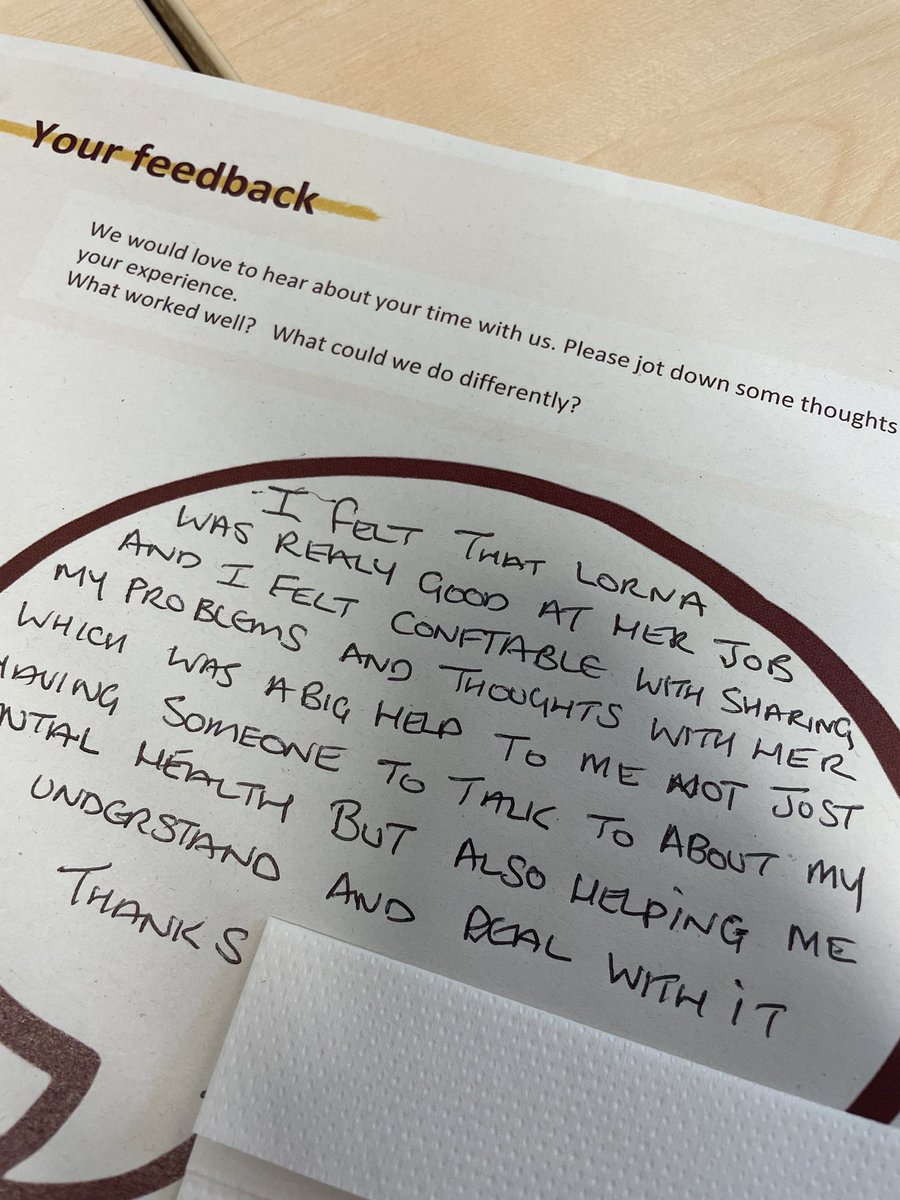 Your feedback
We would love to hear about your time with us. Please jot down some thoughts
your experience.
What worked well? What could we do differently?
I FELT THAT LORNA
WAS REALY GOOD AT HER JOB
AND I FELT CONFTABLE WITH SHARING
MY PROBLEMS AND THOUGHTS WITH HER
WHICH WAS A BIG HELP TO ME NOT JOST
HAVING SOMEONE TO TALK TO ABOUT MY
NTAL HEALTH BUT ALSO HELPING ME
UNDERSTAND AND DEAL WITH iT
THANKS